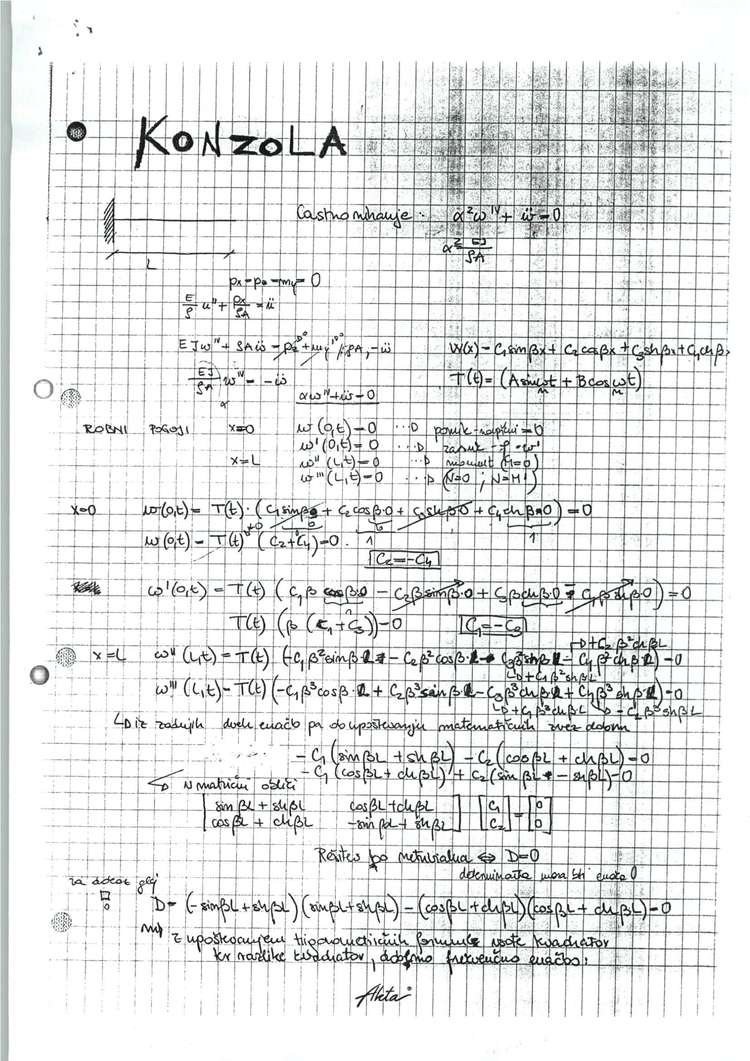 KONZOLA
Lastno nihanje: α²w^IV + ẅ = 0
α² = EJ/ρA
L
px = pz = my = 0
E/ρ u'' + px/ρA = ü
EJw^IV + ρAẅ = pz + my' /ρA, -ẅ
W(x) = C₁sinβx + C₂cosβx + C₃shβx + C₄chβx
EJ/ρA w^IV = -ẅ
α
T(t) = (A sinωt + B cosωt)
αw^IV + ẅ = 0
ROBNI POGOJI x=0 w(0,t) = 0
w'(0,t) = 0
x=L w''(L,t) = 0 moment (M=0)
w'''(L,t) = 0 (N=0 ; N=M')
x=0 w(0,t) = T(t) · (C₁sinβ0 + C₂cosβ·0 + C₃shβ0 + C₄chβ·0) = 0
≠0 0 1 1
w(0,t) = T(t) (C₂+C₄) = 0
C₂ = -C₄
w'(0,t) = T(t) (C₁β cosβ·0 - C₂β sinβ·0 + C₃β chβ·0 + C₄β shβ·0) = 0
T(t) (β (C₁+C₃)) = 0 C₁ = -C₃
+C₂β²chβL
x=L w''(L,t) = T(t) (-C₁β²sinβ·L - C₂β²cosβ·L + C₃β²shβL - C₄β²chβ·L) = 0
+C₁β²shβL
w'''(L,t) = T(t) (-C₁β³cosβ·L + C₂β³sinβ·L - C₃β³chβ·L + C₄β³shβ·L) = 0
+C₁β³chβL -C₂β³shβL
iz zadnjih dveh enačb pa ob upoštevanju matematičnih zvez dobim
-C₁(sinβL + shβL) - C₂(cosβL + chβL) = 0
-C₁(cosβL + chβL) + C₂(sinβL - shβL) = 0
V matrični obliki
[sinβL + shβL cosβL + chβL] [C₁] = [0]
[cosβL + chβL -sinβL + shβL] [C₂] [0]
Rešitev bo netrivialna ⇔ D=0
determinanta mora biti enaka 0
za dokaz glej
D = (-sinβL + shβL)(sinβL + shβL) - (cosβL + chβL)(cosβL + chβL) = 0
z upoštevanjem trigonometričnih formule vsote kvadratov
ter razlike kvadratov, dobimo frekvenčno enačbo: